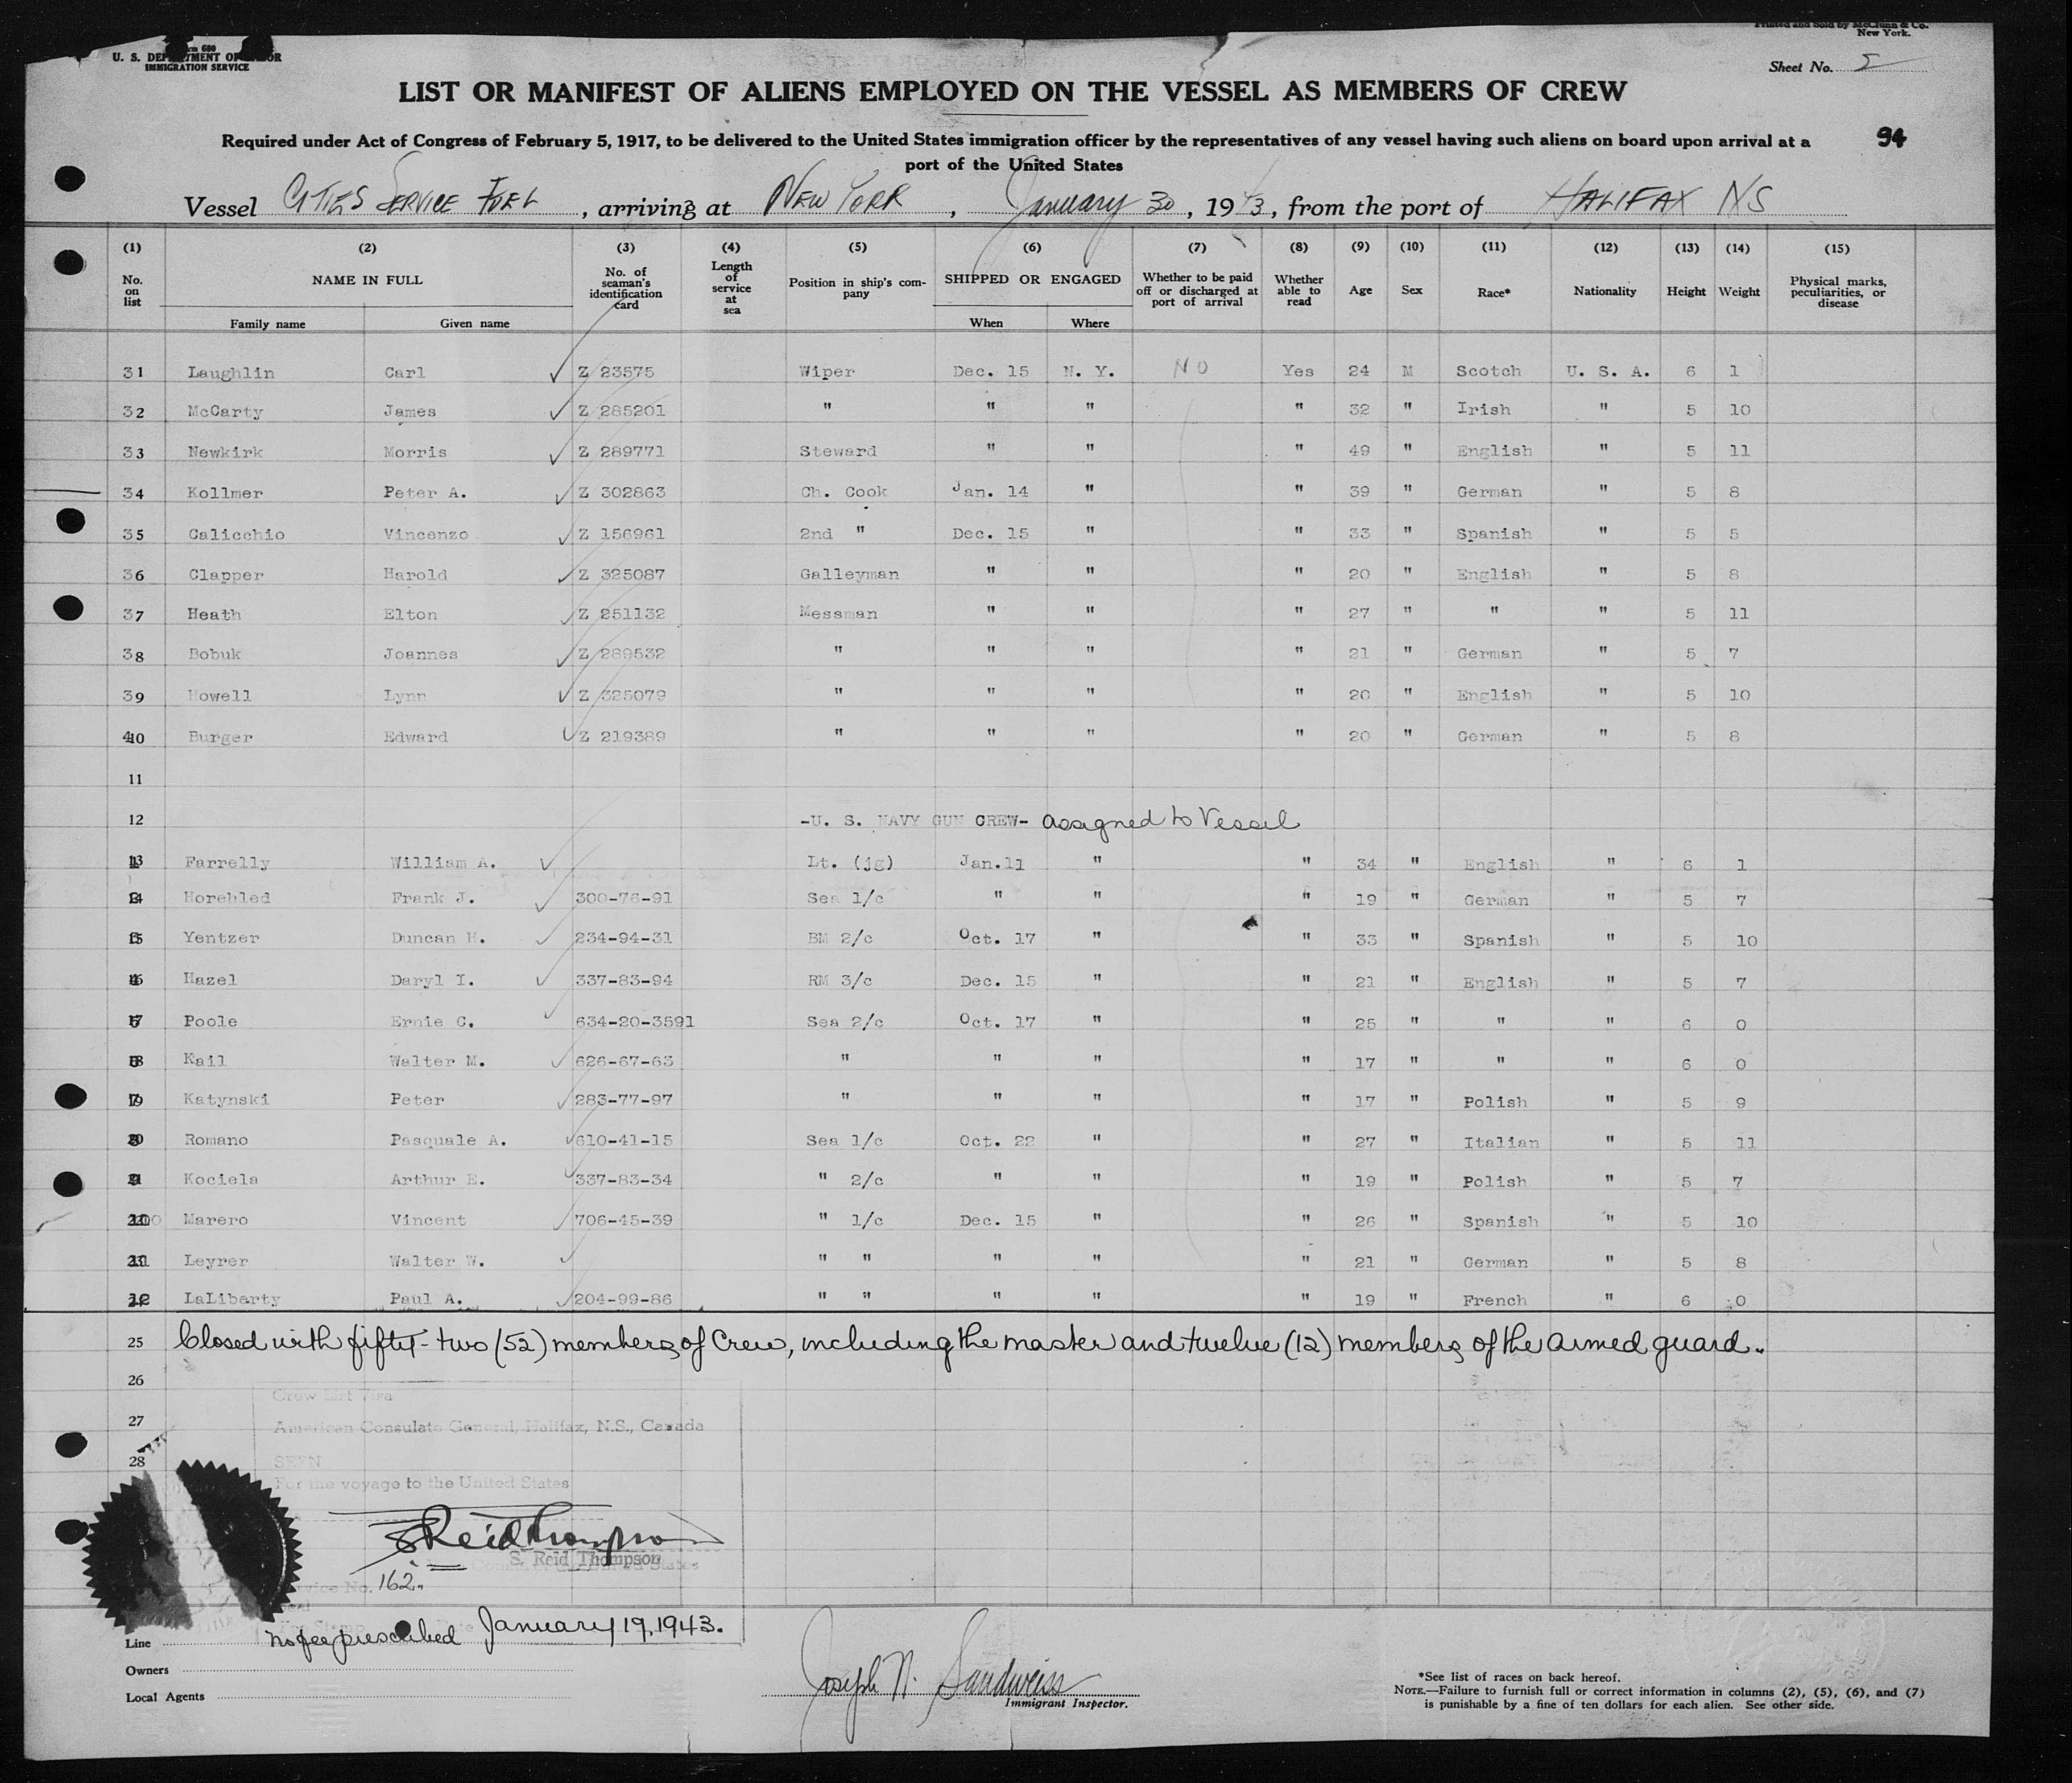 Printed and Sold by McClunn & Co.
New York.
Form 680
U. S. DEPARTMENT OF LABOR
IMMIGRATION SERVICE
Sheet No.
LIST OR MANIFEST OF ALIENS EMPLOYED ON THE VESSEL AS MEMBERS OF CREW
Required under Act of Congress of February 5, 1917, to be delivered to the United States immigration officer by the representatives of any vessel having such aliens on board upon arrival at a
port of the United States
94
Vessel CITIES SERVICE FUEL, arriving at NEW YORK, January 30, 1943, from the port of HALIFAX NS
(1) (2) (3) (4) (5) (6) (7) (8) (9) (10) (11) (12) (13) (14) (15)
No. on list NAME IN FULL No. of seaman's identification card Length of service at sea Position in ship's company SHIPPED OR ENGAGED Whether to be paid off or discharged at port of arrival Whether able to read Age Sex Race* Nationality Height Weight Physical marks, peculiarities, or disease
Family name Given name When Where
31 Laughlin Carl Z 23575 Wiper Dec. 15 N. Y. NO Yes 24 M Scotch U. S. A. 6 1
32 McCarty James Z 285201 " " " " 32 " Irish " 5 10
33 Newkirk Morris Z 289771 Steward " " " 49 " English " 5 11
34 Kollmer Peter A. Z 302863 Ch. Cook Jan. 14 " " 39 " German " 5 8
35 Calicchio Vincenzo Z 156961 2nd " Dec. 15 " " 33 " Spanish " 5 5
36 Clapper Harold Z 325087 Galleyman " " " 20 " English " 5 8
37 Heath Elton Z 251132 Messman " " " 27 " " " 5 11
38 Bobuk Joannes Z 289532 " " " " 21 " German " 5 7
39 Howell Lynn Z 325079 " " " " 20 " English " 5 10
40 Burger Edward Z 219389 " " " " 20 " German " 5 8
11
12 -U. S. NAVY GUN CREW- assigned to Vessel
1 Farrelly William A. Lt. (jg) Jan.11 " " 34 " English " 6 1
2 Horebled Frank J. 300-76-91 Sea 1/c " " " 19 " German " 5 7
3 Yentzer Duncan H. 234-94-31 BM 2/c Oct. 17 " " 33 " Spanish " 5 10
4 Hazel Daryl I. 337-83-94 RM 3/c Dec. 15 " " 21 " English " 5 7
5 Poole Ernie C. 634-20-3591 Sea 2/c Oct. 17 " " 25 " " " 6 0
6 Kail Walter M. 626-67-63 " " " " 17 " " " 6 0
7 Katynski Peter 283-77-97 " " " " 17 " Polish " 5 9
8 Romano Pasquale A. 610-41-15 Sea 1/c Oct. 22 " " 27 " Italian " 5 11
9 Kociela Arthur E. 337-83-34 " 2/c " " " 19 " Polish " 5 7
10 Marero Vincent 706-45-39 " 1/c Dec. 15 " " 26 " Spanish " 5 10
11 Leyrer Walter W. " " " " " 21 " German " 5 8
12 LaLiberty Paul A. 204-99-86 " " " " " 19 " French " 6 0
25 Closed with fifty-two (52) members of Crew, including the master and twelve (12) members of the armed guard.
26
Crew List Visa
27
American Consulate General, Halifax, N.S., Canada
28
SEEN
For the voyage to the United States
S Reid Thompson
S. Reid Thompson
Service No. 162.
no fee prescribed January 19, 1943.
Line
Owners
Local Agents
Joseph N. Sandweiss
Immigrant Inspector.
*See list of races on back hereof.
NOTE.—Failure to furnish full or correct information in columns (2), (5), (6), and (7)
is punishable by a fine of ten dollars for each alien. See other side.